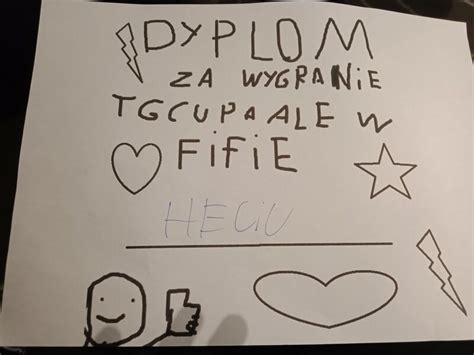 DYPLOM
ZA WYGRANiE
TGCUPA ALE W
FiFiE
HECiU